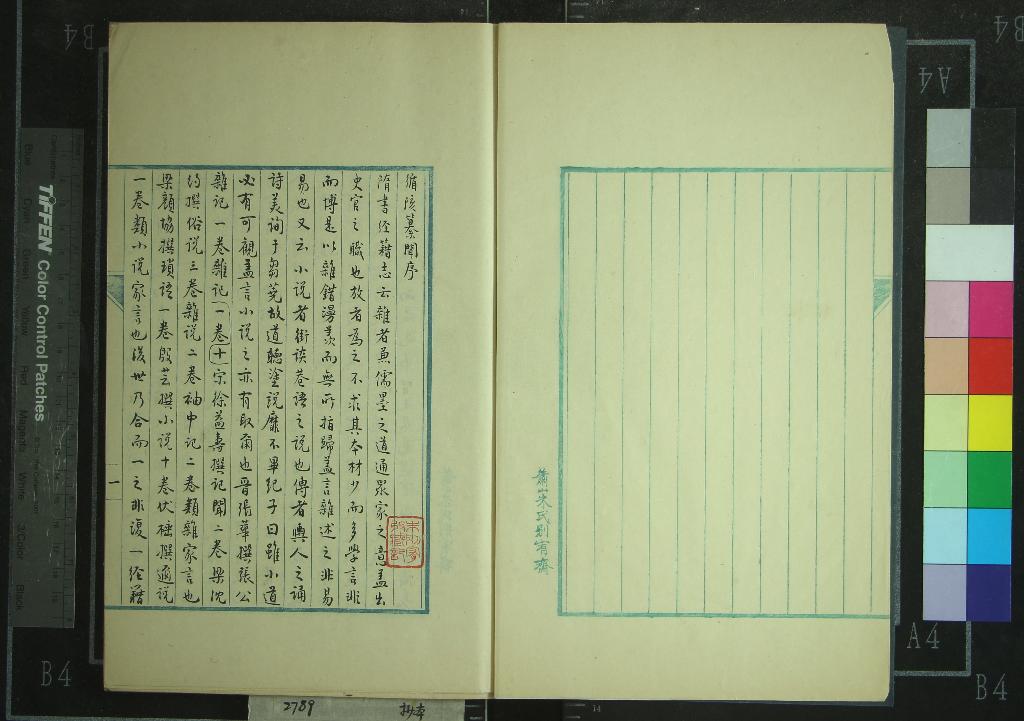 循陔纂聞序
隋書經籍志云雜者兼儒墨之道通眾家之意蓋出
史官之職也放者為之不求其本材少而多學言非
而博是以雜錯漫羨而無所指歸蓋言雜述之非易
易也又云小說者街談巷語之說也傳者輿人之誦
詩美詢于芻蕘故道聽塗說靡不畢紀子曰雖小道
必有可觀蓋言小說之亦有取爾也晉張華撰張公
雜記一卷雜記一卷十宋徐益壽撰記聞二卷梁沈
約撰俗說三卷雜說二卷袖中記二卷類雜家言也
梁顧協撰瑣語一卷殷芸撰小說十卷伏㮛撰邇說
一卷類小說家言也後世乃合而一之非復一經籍
一
蕭山朱氏別宥齋
2789
抄本
TIFFEN Color Control Patches
Blue
Cyan
Green
Yellow
Red
Magenta
White
3/Color
Black
B4
A4
B4
B4
A4
B4